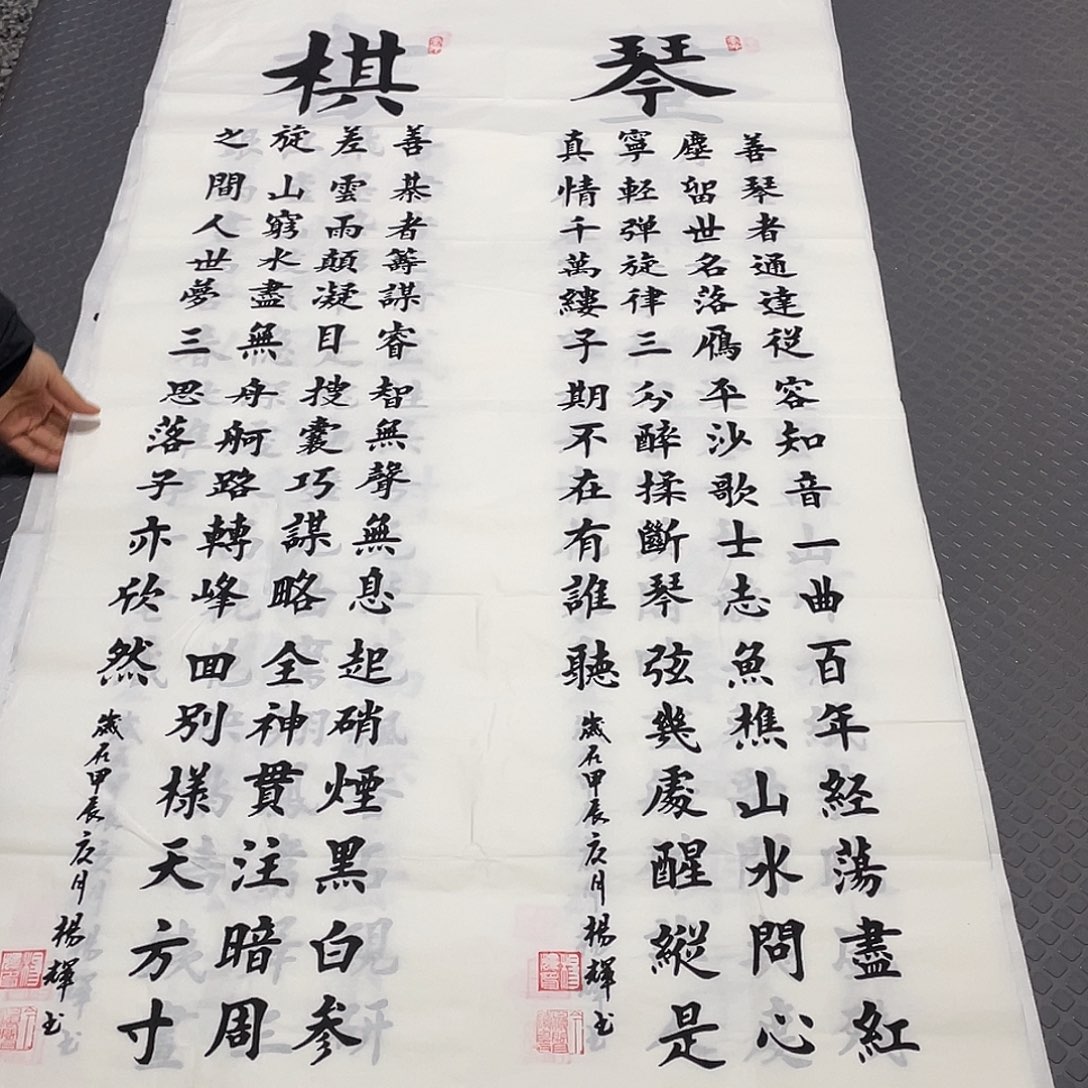 琴
善琴者通達従容知音一曲百年経蕩盡紅
塵留世名落鴈平沙歌士志魚樵山水問心
寧軽弾旋律三分醉揉斷琴弦幾處醒縱是
真情千萬縷子期不在有誰聽
歲在甲辰夏月楊輝书
棋
善棊者籌謀睿智無聲無息起硝煙黑白参
差雲雨顛凝目搜囊巧謀略全神貫注暗周
旋山窮水盡無舟舸路轉峰回別様天方寸
之間人世夢三思落子亦欣然
歲在甲辰夏月楊輝书